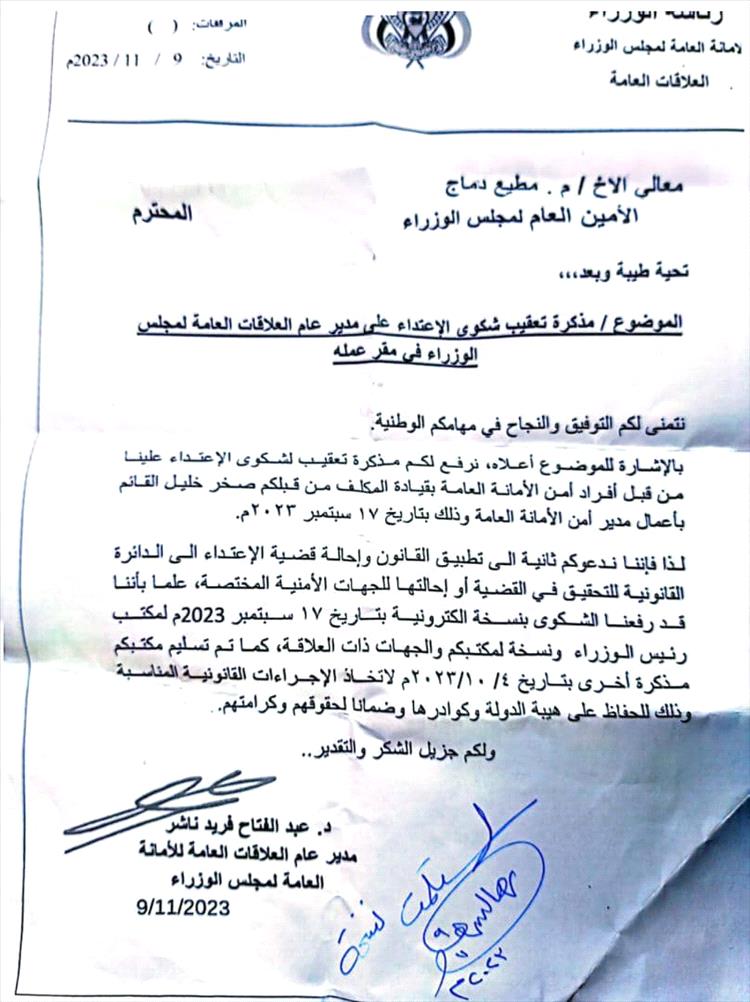 رئاسة الوزراء
الامانة العامة لمجلس الوزراء
العلاقات العامة
المرفقات: ( )
التاريخ: 9 / 11 / 2023م
معالي الاخ / م . مطيع دماج
الأمين العام لمجلس الوزراء المحترم
تحية طيبة وبعد،،،
الموضوع / مذكرة تعقيب شكوى الإعتداء على مدير عام العلاقات العامة لمجلس
الوزراء في مقر عمله
نتمنى لكم التوفيق والنجاح في مهامكم الوطنية.
بالإشارة للموضوع أعلاه، نرفع لكم مذكرة تعقيب لشكوى الإعتداء علينا
من قبل أفراد أمن الأمانة العامة بقيادة المكلف من قبلكم صخر خليل القائم
بأعمال مدير أمن الأمانة العامة وذلك بتاريخ ١٧ سبتمبر ٢٠٢٣م.
لذا فإننا ندعوكم ثانية الى تطبيق القانون وإحالة قضية الإعتداء الى الدائرة
القانونية للتحقيق في القضية أو إحالتها للجهات الأمنية المختصة، علما بأننا
قد رفعنا الشكوى بنسخة الكترونية بتاريخ ١٧ سبتمبر 2023م لمكتب
رئيس الوزراء ونسخة لمكتبكم والجهات ذات العلاقة، كما تم تسليم مكتبكم
مذكرة أخرى بتاريخ ٤/ ٢٠٢٣/١٠م لاتخاذ الإجراءات القانونية المناسبة
وذلك للحفاظ على هيبة الدولة وكوادرها وضمانا لحقوقهم وكرامتهم.
ولكم جزيل الشكر والتقدير..
د. عبد الفتاح فريد ناشر
مدير عام العلاقات العامة للأمانة
العامة لمجلس الوزراء
9/11/2023
استلمت نسخة